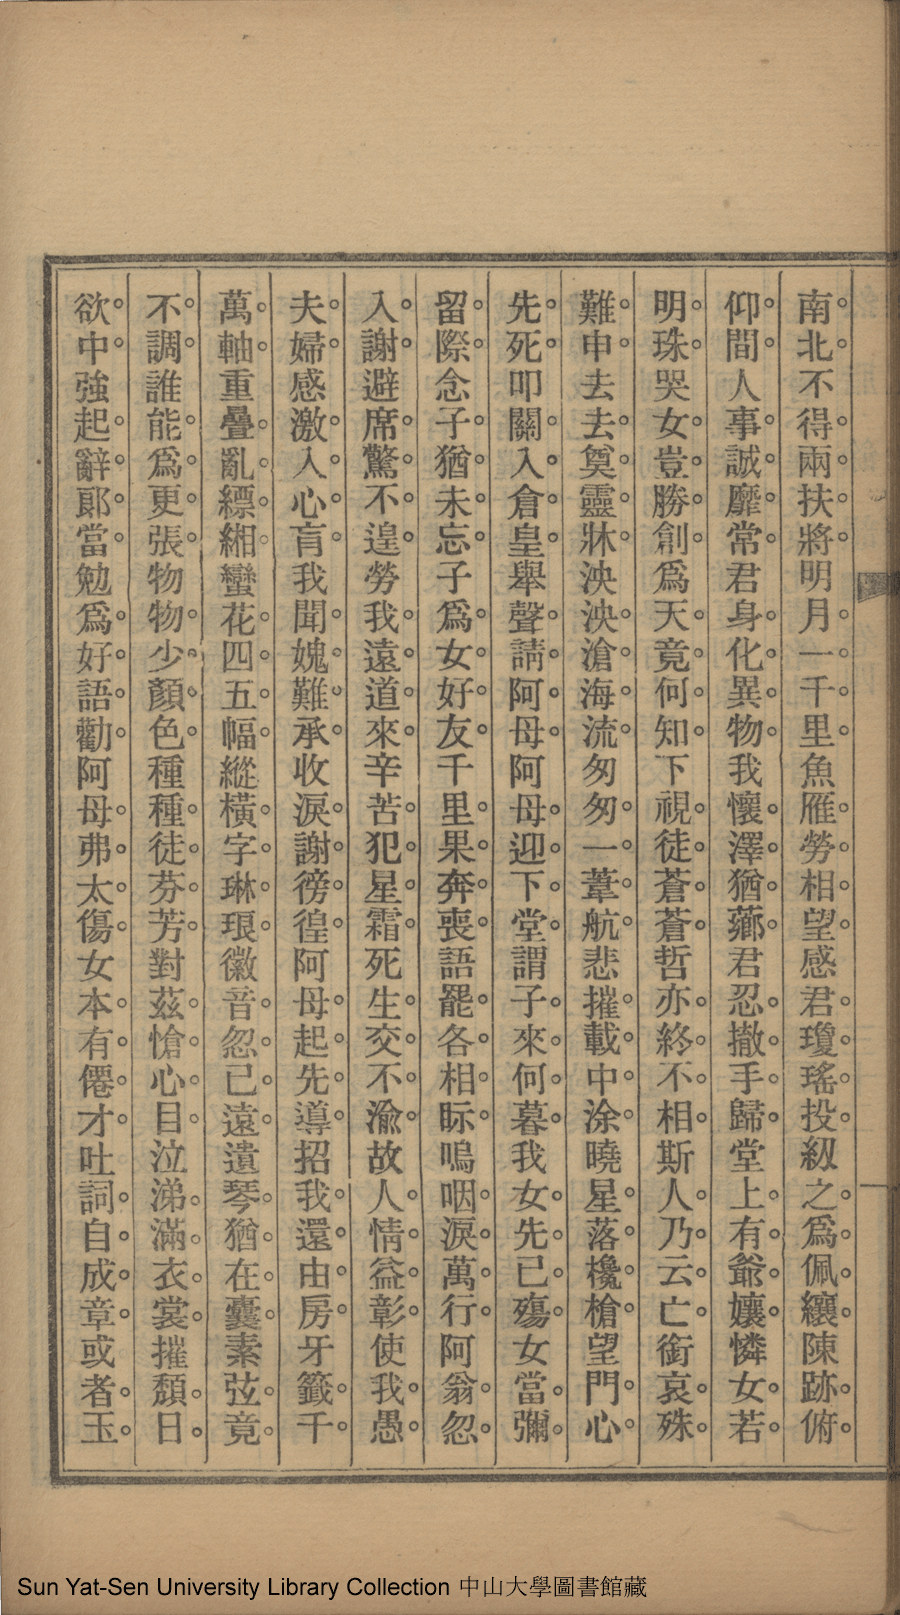 南北不得兩扶將明月一千里魚雁勞相望感君瓊瑤投紉之爲佩纕陳跡俯
仰間人事誠靡常君身化異物我懷澤猶薌君忍撤手歸堂上有爺孃憐女若
明珠哭女豈勝創爲天竟何知下視徒蒼蒼哲亦終不相斯人乃云亡銜哀殊
難申去去奠靈牀泱泱滄海流匆匆一葦航悲摧載中涂曉星落欃槍望門心
先死叩關入倉皇舉聲請阿母阿母迎下堂謂子來何暮我女先已殤女當彌
留際念子猶未忘子爲女好友千里果奔喪語罷各相眎嗚咽淚萬行阿翁忽
入謝避席驚不遑勞我遠道來辛苦犯星霜死生交不渝故人情益彰使我愚
夫婦感激入心肓我聞媿難承收淚謝徬徨阿母起先導招我還由房牙籤千
萬軸重疊亂縹緗蠻花四五幅縱橫字琳琅徽音忽已遠遺琴猶在囊素弦竟
不調誰能爲更張物物少顏色種種徒芬芳對茲愴心目泣涕滿衣裳摧頹日
欲中強起辭郎當勉爲好語勸阿母弗太傷女本有僊才吐詞自成章或者玉
Sun Yat-Sen University Library Collection 中山大學圖書館藏